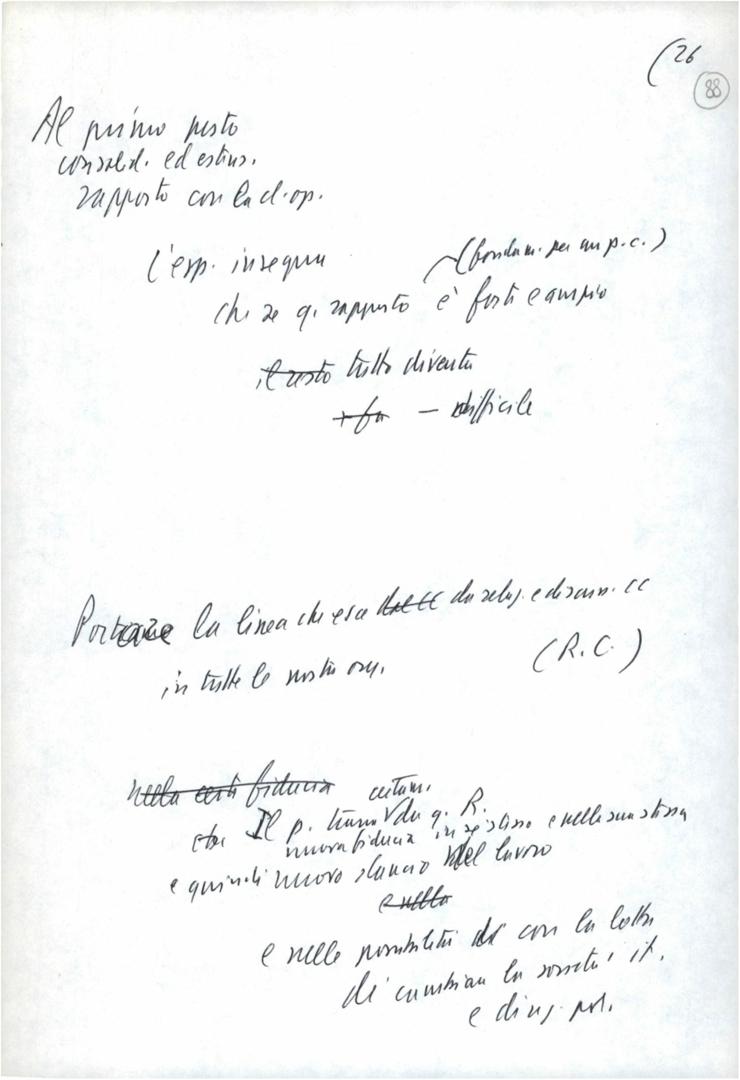 (26
88
Al primo posto
consolid. ed estens.
rapporto con la cl. op.
L'esp. insegna
(fondam. per un p. c.)
che se q. rapporto è forte e ampio
il resto tutto diventa
+ fa — difficile
Portare la linea che esce dal CC da relaz. e discuss. CC
in tutte le nostre org.
(R.C.)
nella certa fiducia
certam.
che Il p. trarrà da q. R.
nuova fiducia in se stesso e nella sua stessa
e quindi nuovo slancio nel lavoro
e nella
e nelle possibilità di con la lotta
di cambiare la società it.
e direz. pol.